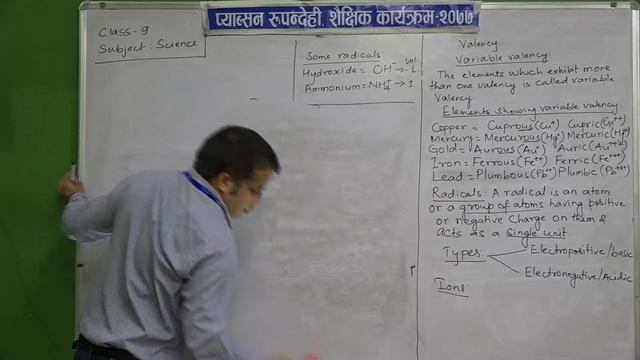 प्याब्सन रूपन्देही, शैक्षिक कार्यक्रम-२०७७
Class-9
Subject: Science
Some radicals:
Vol.
Hydroxide = OH⁻ → -1
Ammonium = NH₄⁺ → 1
Valency.
Variable valency:
The elements which exhibit more
than one valency is called variable
Valency.
Elements showing variable valency
Copper = Cuprous (Cu⁺) Cupric (Cu⁺⁺)
Mercury = Mercurous (Hg⁺) Mercuric (H
Gold = Aurous (Au⁺) Auric (Au⁺⁺⁺)
Iron = Ferrous (Fe⁺⁺) Ferric (Fe⁺⁺⁺)
Lead = Plumbous (Pb⁺⁺) Plumbic (Pb
Radicals: A radical is an atom
or a group of atoms having positive
or negative Charge on them &
acts as a single unit.
Types:
Electropositive/basic
Electronegative/Acidic
Ions: